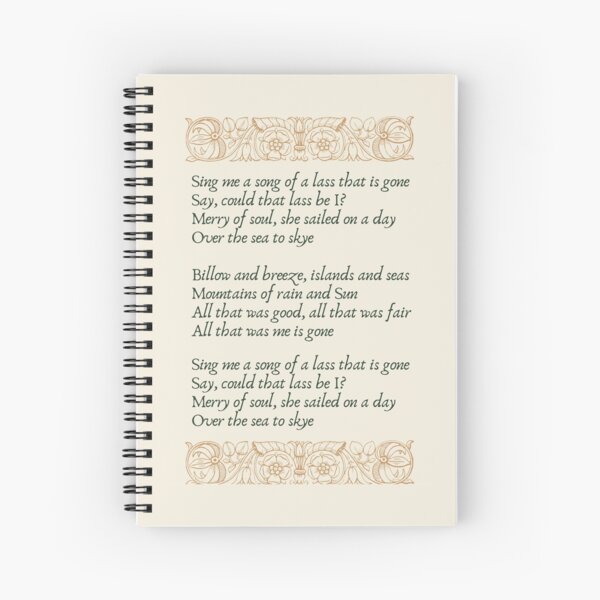 Sing me a song of a lass that is gone
Say, could that lass be I?
Merry of soul, she sailed on a day
Over the sea to skye
Billow and breeze, islands and seas
Mountains of rain and Sun
All that was good, all that was fair
All that was me is gone
Sing me a song of a lass that is gone
Say, could that lass be I?
Merry of soul, she sailed on a day
Over the sea to skye